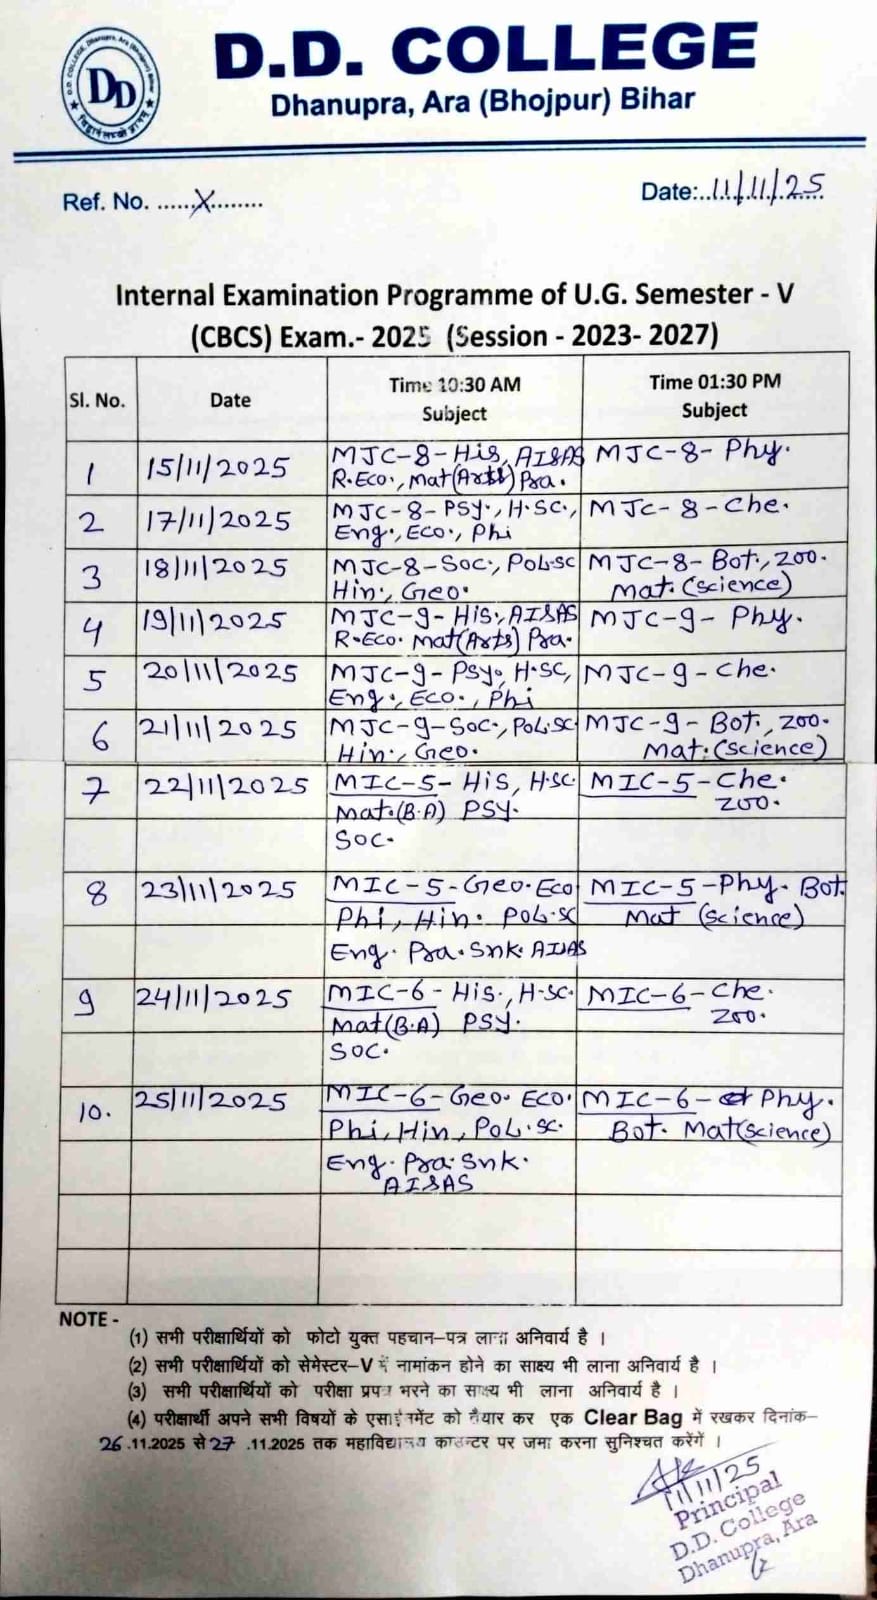 D.D. COLLEGE
Dhanupra, Ara (Bhojpur) Bihar
DD
Ref. No. ......X........
Date:..11/11/25
Internal Examination Programme of U.G. Semester - V
(CBCS) Exam.- 2025 (Session - 2023- 2027)
Sl. No. Date Time 10:30 AM Subject Time 01:30 PM Subject
1 15/11/2025 MJC-8-His, AI&AS MJC-8- Phy.
R.Eco., Mat(Arts) Pra.
2 17/11/2025 MJC-8-PSY., H.SC., MJC-8-Che.
Eng., Eco., Phi
3 18/11/2025 MJC-8-Soc., Pol.sc MJC-8-Bot., Zoo.
Hin., Geo. Mat. (science)
4 19/11/2025 MJC-9-His., AI&AS MJC-9- Phy.
R.Eco. Mat(Arts) Pra.
5 20/11/2025 MJC-9-Psy., H.SC, MJC-9-Che.
Eng., Eco., Phi
6 21/11/2025 MJC-9-Soc., Pol.sc MJC-9-Bot., Zoo.
Hin., Geo. Mat. (science)
7 22/11/2025 MIC-5- His, H.sc. MIC-5-Che.
Mat.(B.A) PSY. Zoo.
SOC.
8 23/11/2025 MIC-5-Geo. Eco MIC-5-Phy. Bot.
Phi, Hin. Pol.sc Mat (science)
Eng. Pra. Snk. AI&AS
9 24/11/2025 MIC-6- His., H.sc. MIC-6-Che.
Mat(B.A) PSY. Zoo.
SOC.
10. 25/11/2025 MIC-6-Geo. Eco. MIC-6- Phy.
Phi, Hin, Pol.sc. Bot. Mat(science)
Eng. Pra. Snk.
AI&AS
NOTE -
(1) सभी परीक्षार्थियों को फोटो युक्त पहचान–पत्र लाना अनिवार्य है ।
(2) सभी परीक्षार्थियों को सेमेस्टर–V में नामांकन होने का साक्ष्य भी लाना अनिवार्य है ।
(3) सभी परीक्षार्थियों को परीक्षा प्रपत्र भरने का साक्ष्य भी लाना अनिवार्य है ।
(4) परीक्षार्थी अपने सभी विषयों के एसाईनमेंट को तैयार कर एक Clear Bag में रखकर दिनांक–
26.11.2025 से 27.11.2025 तक महाविद्यालय काउन्टर पर जमा करना सुनिश्चत करेंगें ।
11/11/25
Principal
D.D. College
Dhanupra, Ara